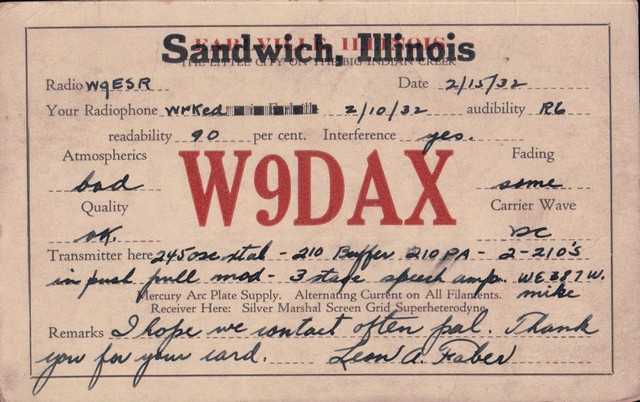 EARLVILLE, ILLINOIS
Sandwich, Illinois
THE LITTLE CITY ON THE BIG INDIAN CREEK
Radio W9ESR Date 2/15/32
Your Radiophone Wrked 2/10/32 audibility R6
readability 90 per cent. Interference yes.
Atmospherics Fading
bad some
W9DAX
Quality Carrier Wave
ok. DC
Transmitter here 245 osc xtal - 210 Buffer 210 PA - 2-210's
in push pull mod - 3 stage speech amp. WE 387 W.
mike
Mercury Arc Plate Supply. Alternating Current on All Filaments.
Receiver Here: Silver Marshal Screen Grid Superheterodyne
Remarks I hope we contact often pal. Thank
you for your card. Leon A. Faber